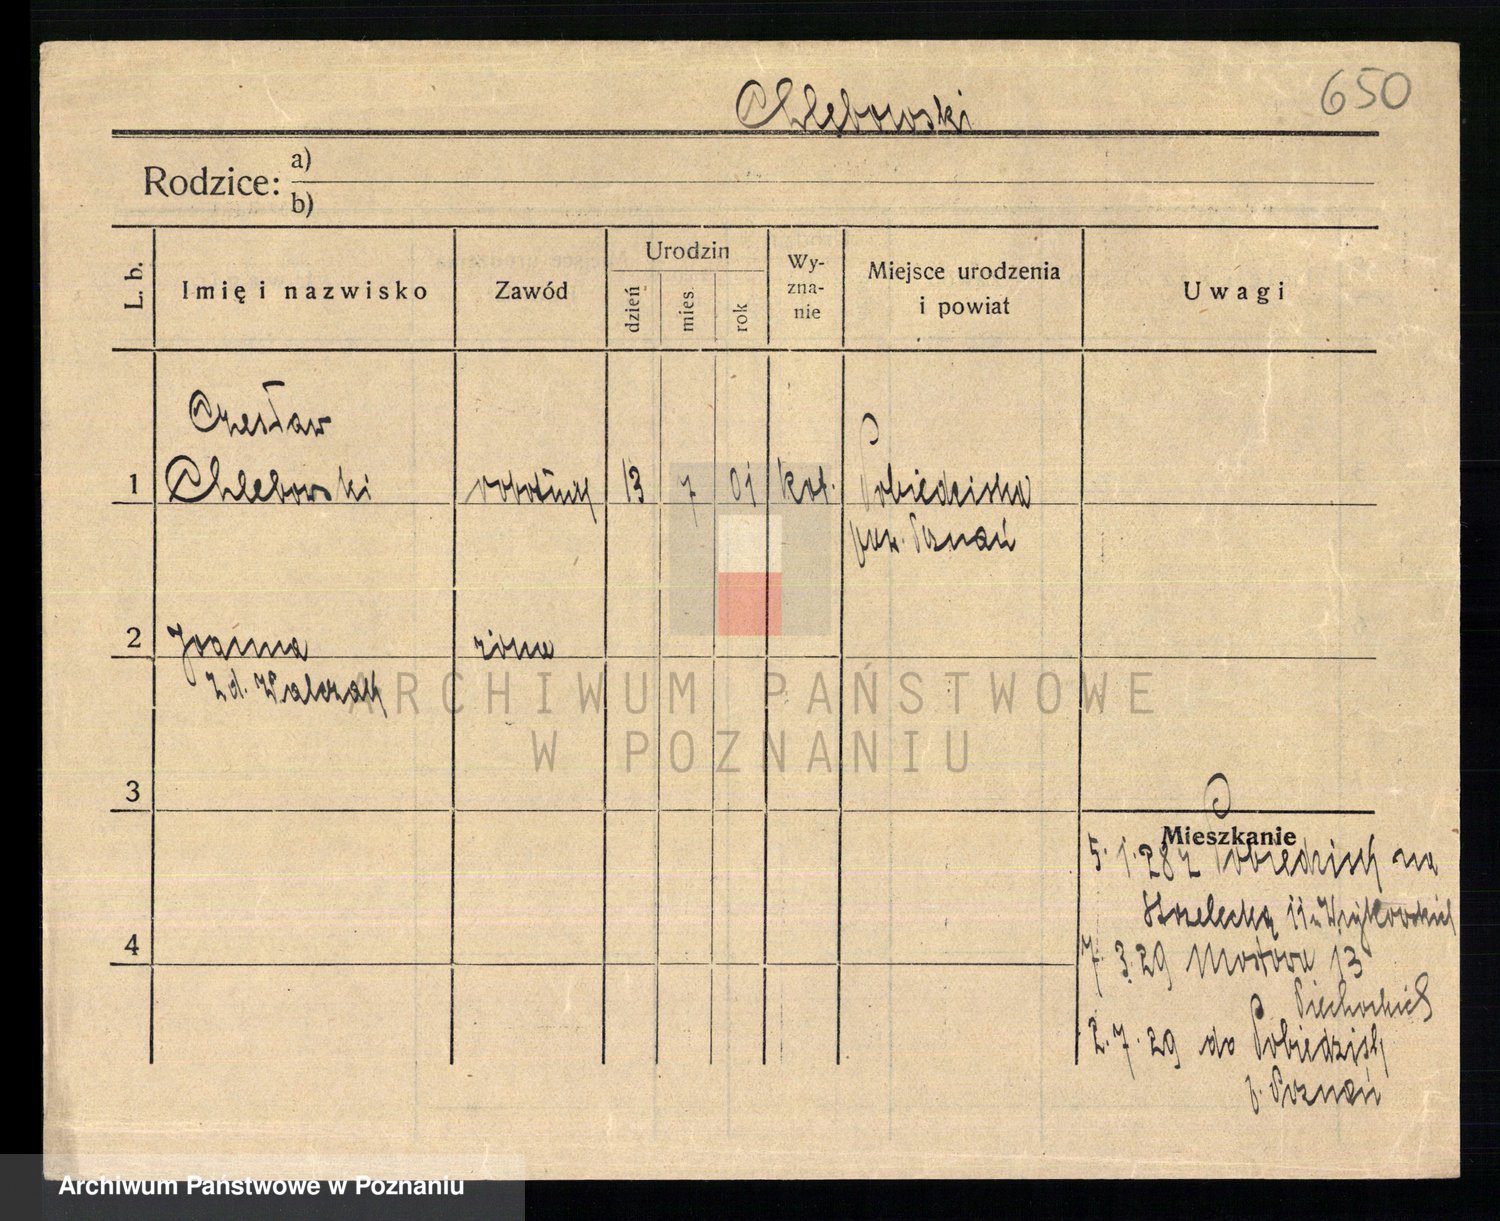 650
Chlebowski
Rodzice:
a)
b)
L. b.
Imię i nazwisko
Zawód
Urodzin
dzień
mies.
rok
Wy-
zna-
nie
Miejsce urodzenia
i powiat
Uwagi
Czesław
1 Chlebowski robotnik 13 7 01 kat. Pobiedziska
pow. Poznań
2 Joanna żona
z d. Walczak
3
Mieszkanie
5.1.28 z Pobiedzisk na
Strzelecką 11
4
7.3.29 Mostowa 13
Piechockich
2.7.29 do Pobiedzisk
p. Poznań
ARCHIWUM PAŃSTWOWE
W POZNANIU
Archiwum Państwowe w Poznaniu